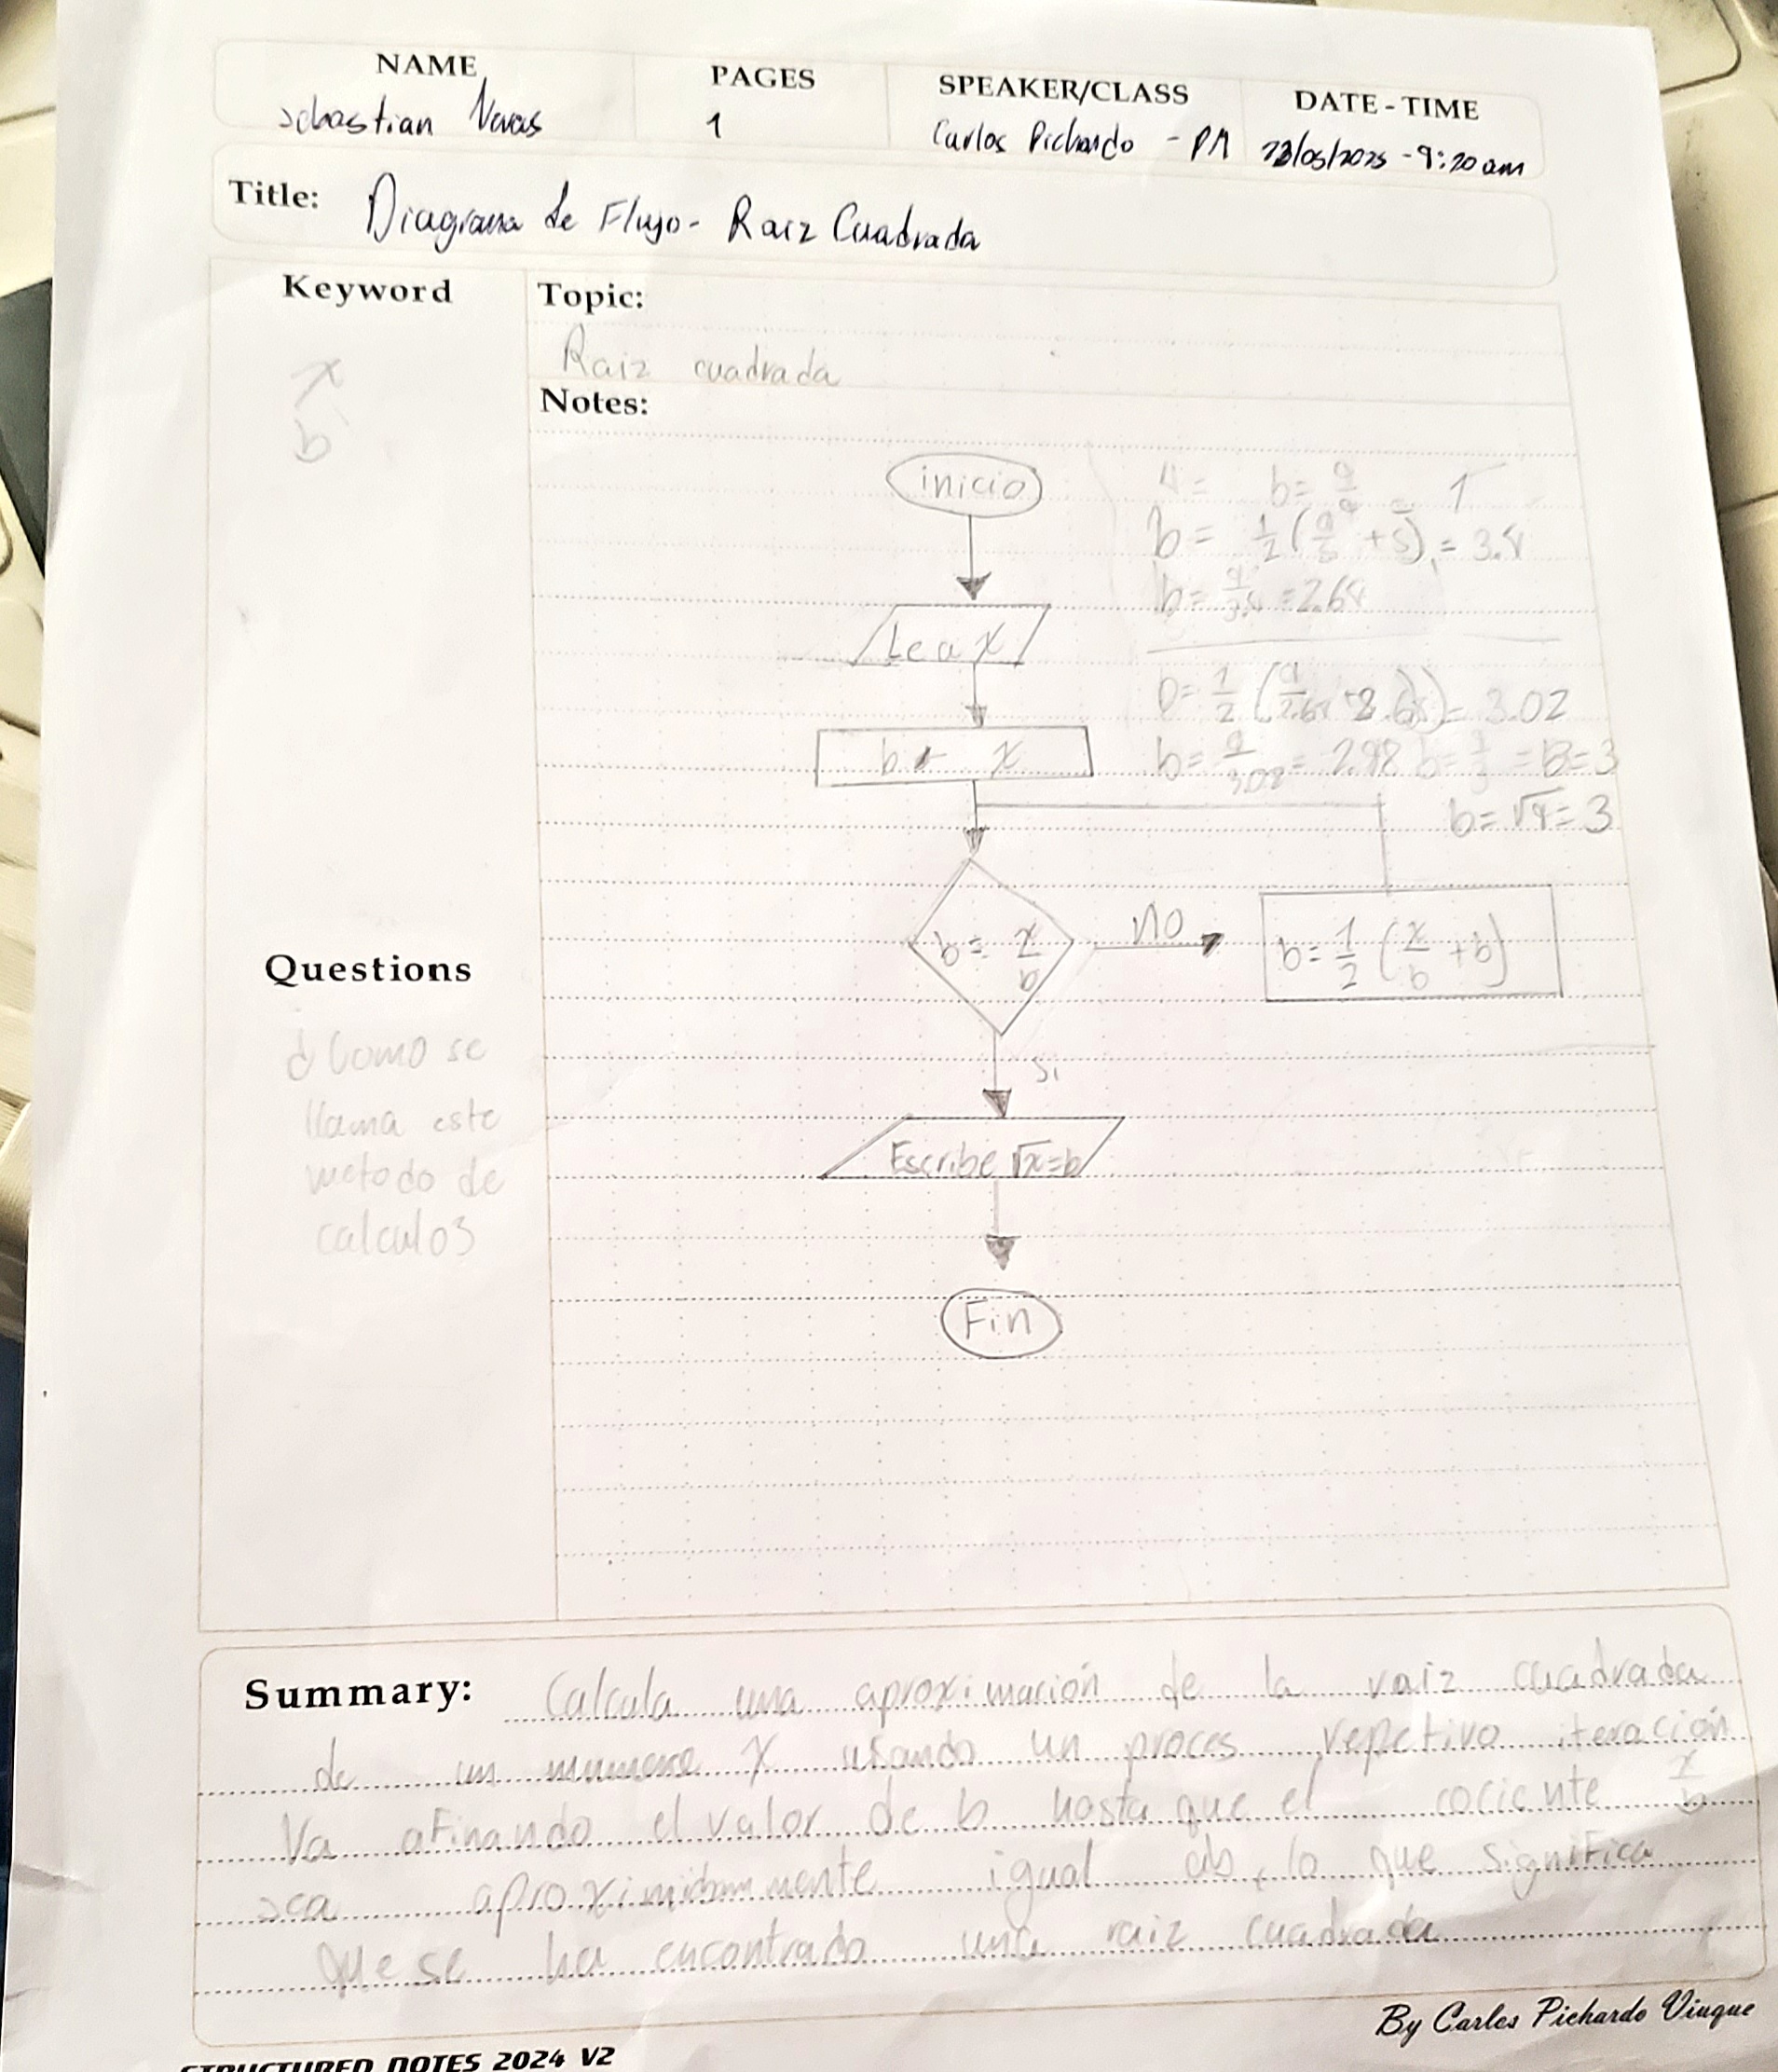 NAME
PAGES
SPEAKER/CLASS
DATE - TIME
Sebastian
1
Carlos Pichardo - PM
/05/2025 - 9:20 am
Title: Diagrama de Flujo - Raiz Cuadrada
Keyword
x
b
Topic:
Raiz cuadrada
Notes:
inicio
Lea x
b ← x
b = x/b
no
b = 1/2 (x/b + b)
Si
Escribe √x=b
Fin
b =
b = 1/2 ( + 5) =
b = = 2.68
= 3.02
b = 9/3.02 = 2.98
b = √9 = 3
Questions
¿Como se
llama este
metodo de
calculo?
Summary: Calcula una aproximación de la raiz cuadrada
de un X usando un proces repetivo iteración
Va afinando el valor de b hasta que el cociente x/b
sea igual lo que significa
que se ha encontrado una raiz cuadrada
By Carlos Pichardo Viuque
STRUCTURED NOTES 2024 V2